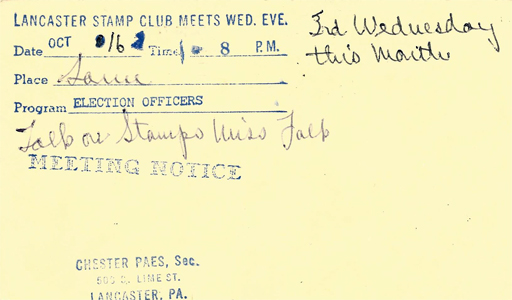 LANCASTER STAMP CLUB MEETS WED. EVE.
3rd Wednesday
this Month
Date OCT 16 Time 8 P.M.
Place Same
Program ELECTION OFFICERS
Talk on Stamps Miss Falk
MEETING NOTICE
CHESTER PAES, Sec.
LIME ST.
LANCASTER, PA.